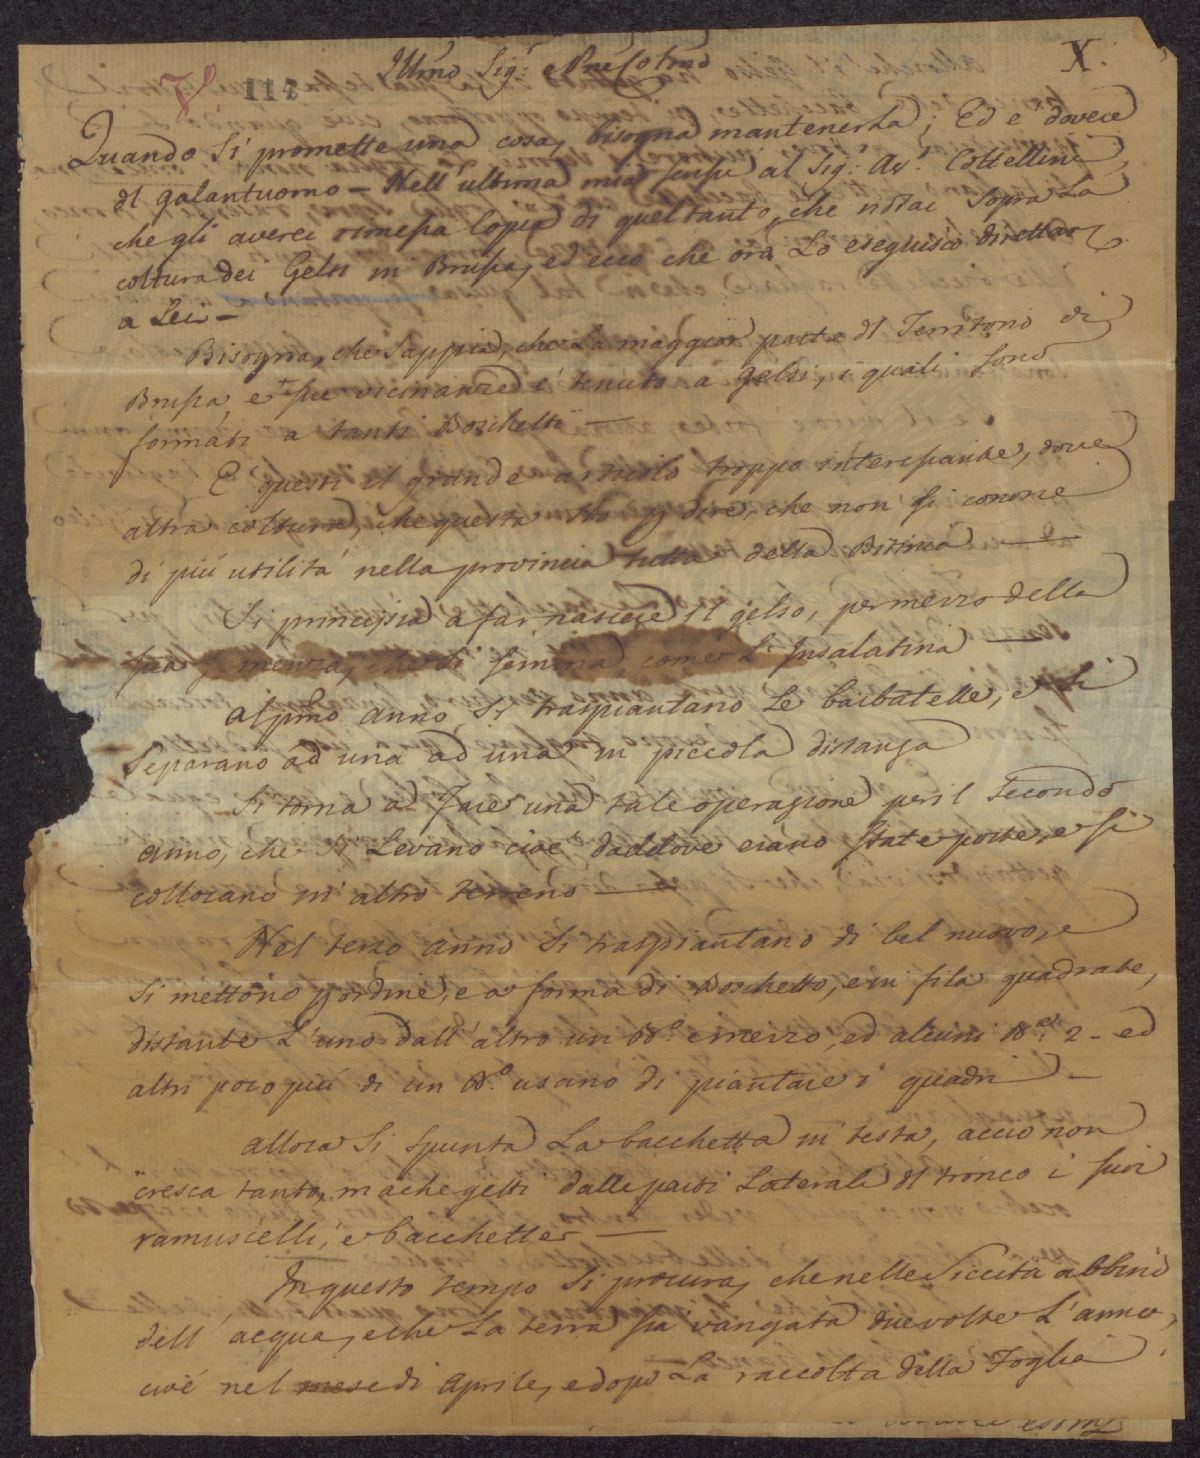 Illmo Sig.r e Pne Colmo
X.
113
Quando si promette una cosa, bisogna mantenerla; Ed è dovere
dl galantuomo – Nell'ultima mia scrissi al Sig.r Av.o Coltellini
che gli averei rimessa Copia di quel tanto, che notai sopra la
coltura dei Gelsi in Brussa, ed ecco che ora Lo eseguisco direttam.e
a Lei –
Bisogna, che sappia, che La maggior parte dl Territorio di
Brussa, e sue vicinanze è tenuto a gelsi, i quali sono
formati a tanti Boschetti —
È questi il grande articolo troppo interessante, dove
altra coltura, che questa sto p dire, che non si conosce
di più utilità nella provincia tutta della Bitinia —
Si principia a far nascere il gelso, per mezzo della
sua semenza, che si semina, come L'Insalatina —
al pmo anno si traspiantano Le barbatelle, e si
separano ad una ad una in piccola distanza
Si torna a far una tale operazione per il secondo
anno, che si Levano cioè daddove erano state poste, e si
collocano in altro terreno —
Nel terzo anno si traspiantano di bel nuovo, e
si mettono p ordine, e a forma di Boschetto, e in fila quadrate,
distante L'uno dall'altro un B.o e mezzo, ed alcuni B.a 2 – ed
altri poco più di un B.o usano di piantare i quadri –
allora si spunta La bacchetta in testa, acciò non
cresca tanto, ma che getti dalle parti Laterali dl tronco i suoi
ramuscelli, e bacchette —
In questo tempo si procura, che nelle Siccità abbino
dell'acqua, e che La terra sia vangata due volte L'anno,
cioè nel mese di Aprile, e dopo La raccolta della Foglia